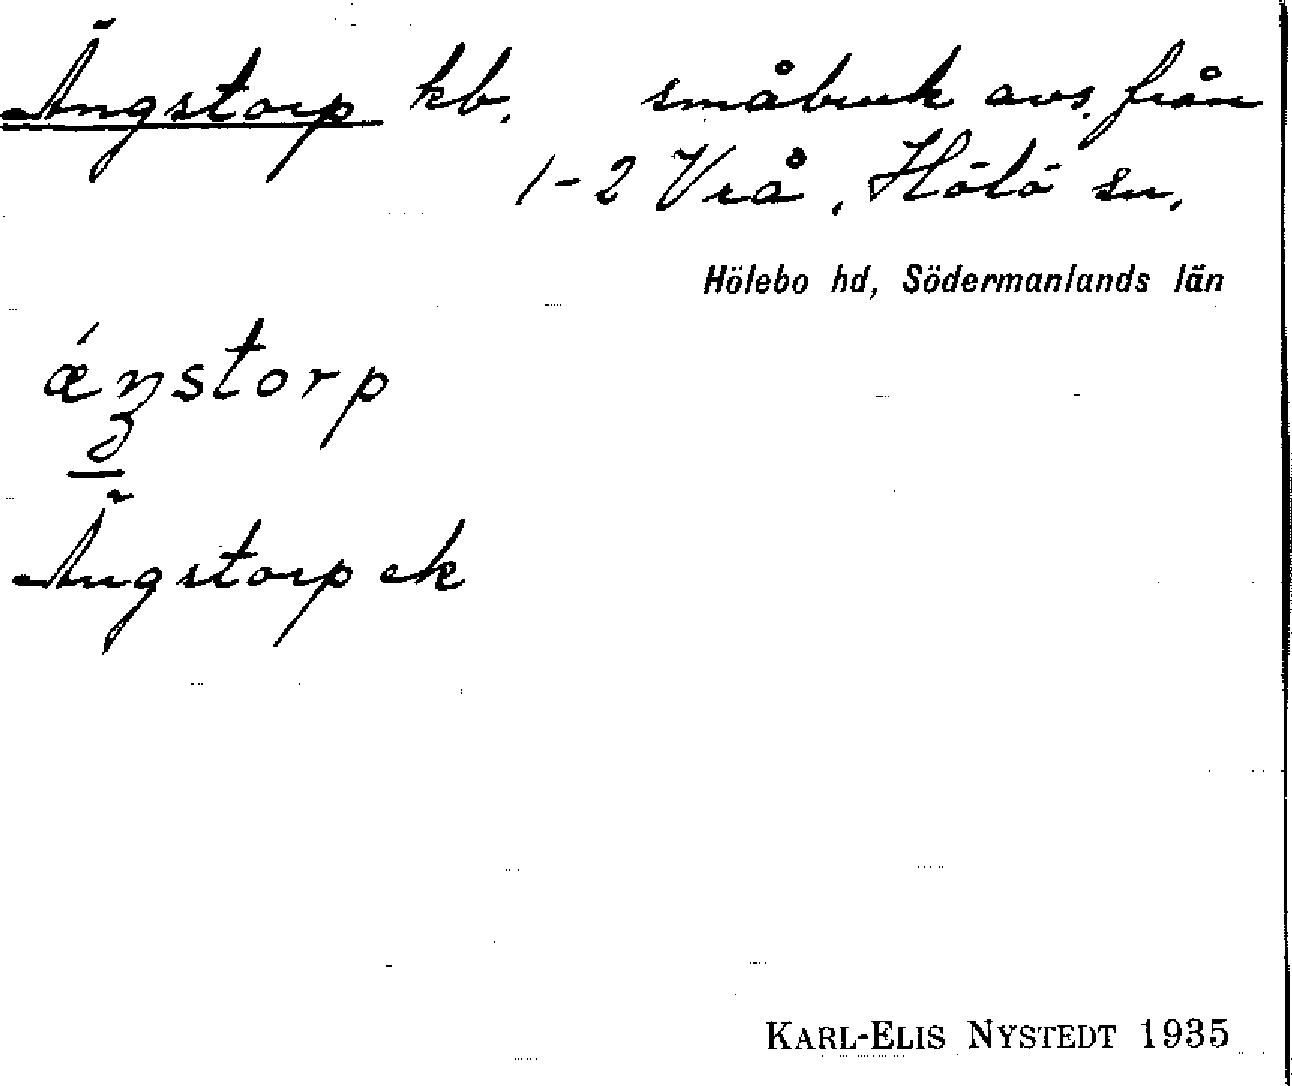 Ängstorp kb. småbruk avs. från
1-2 Vrå, Hölö sn.
Hölebo hd, Södermanlands län
ǽŋstorp
Ängstorp ek
KARL-ELIS NYSTEDT 1935